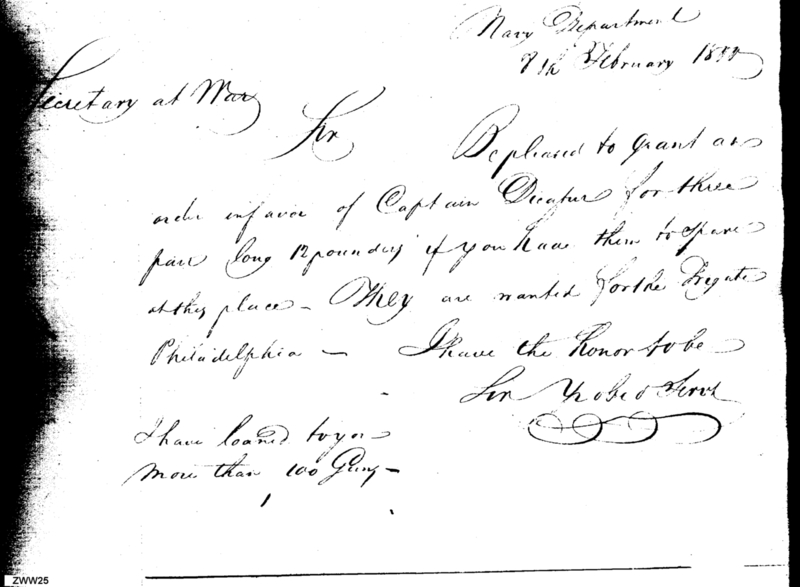 Navy Department
7th February 1800
Secretary at War
Sir
Be pleased to grant an
order in favor of Captain Decatur for three
pair long 12 pounders if you have them to spare
at this place – They are wanted for the Frigate
Philadelphia – I have the honor to be
Sir Yr obed Servt
I have loaned to you
more than 100 Guns –
ZWW25